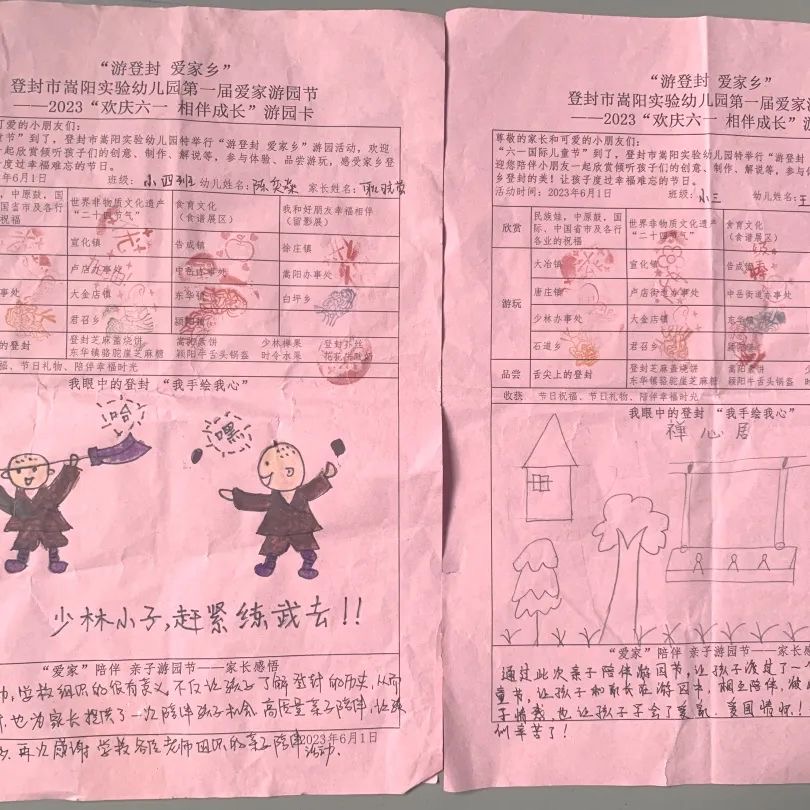 “游登封 爱家乡”
登封市嵩阳实验幼儿园第一届爱家游园节
——2023“欢庆六一 相伴成长”游园卡
可爱的小朋友们：
童节”到了，登封市嵩阳实验幼儿园特举行“游登封 爱家乡”游园活动，欢迎
一起欣赏倾听孩子们的创意、制作、解说等，参与体验、品尝游玩，感受家乡登
度过幸福难忘的节日。
年6月1日 班级：小四班 幼儿姓名：陈奕 家长姓名：
，中原鼓，国 世界非物质文化遗产 食育文化 我和好朋友幸福相伴
国省市及各行 “二十四节气” （食谱展区） （留影展）
祝福
宣化镇 告成镇 徐庄镇
卢店办事处 中岳办事处 嵩阳办事处
事处 大金店镇 东华镇 白坪乡
君召乡 颍阳镇
的登封 登封芝麻盖烧饼 嵩 饼 少林禅果 登封
东华镇骆驼崖芝麻糖 颍阳牛舌头锅盔 时令水果
福、节日礼物、陪伴幸福时光
我眼中的登封 “我手绘我心”
嘿
少林小子，赶紧练武去！！
“爱家”陪伴 亲子游园节——家长感悟
学校组织的很有意义，不仅让孩子了解登封的历史，从而
也为家长提供了一次陪伴孩子机会 高质量亲子陪伴，让孩
再次感谢学校各位老师组织的亲子陪伴活动。
2023年6月1日
“游登封 爱家乡”
登封市嵩阳实验幼儿园第一届爱家游
——2023“欢庆六一 相伴成长”游
尊敬的家长和可爱的小朋友们：
“六一国际儿童节”到了，登封市嵩阳实验幼儿园特举行“游登封
迎您陪伴小朋友一起欣赏倾听孩子们的创意、制作、解说等，参与体
乡登封的美！让孩子度过幸福难忘的节日。
活动时间：2023年6月1日 班级：小三 幼儿姓名：王
欣赏 民族娃，中原鼓，国 世界非物质文化遗产 食育文化
际，中国省市及各行 “二十四节气” （食谱展区）
各业的祝福
游玩 大冶镇 宣化镇 告成镇
唐庄镇 卢店街道办事处 中岳街道办事处
少林办事处 大金店镇 东华镇
石道乡 君召乡 颍阳
品尝 舌尖上的登封 登封芝麻盖烧饼 嵩 饼 少
东华镇骆驼崖芝麻糖 颍阳牛舌头锅盔 时
收获 节日祝福、节日礼物、陪伴幸福时光
我眼中的登封 “我手绘我心”
禅心居
“爱家”陪伴 亲子游园节——家长感
通过此次亲子陪伴游园节，让孩子渡过了一
童节，让孩子和家长在游园中，相互陪伴，
子情感，也让孩子学会了爱家、爱国情怀！
们辛苦了！